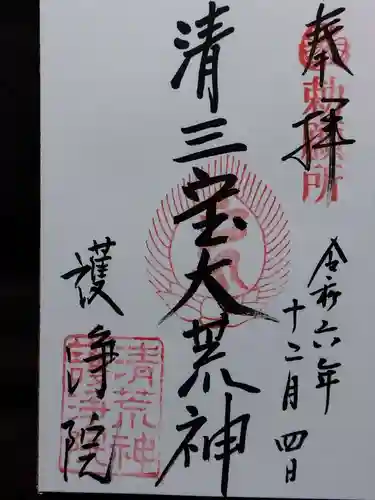 奉拝
勅願所
令和六年
十二月四日
清三宝大荒神
護浄院
清荒神
護浄院